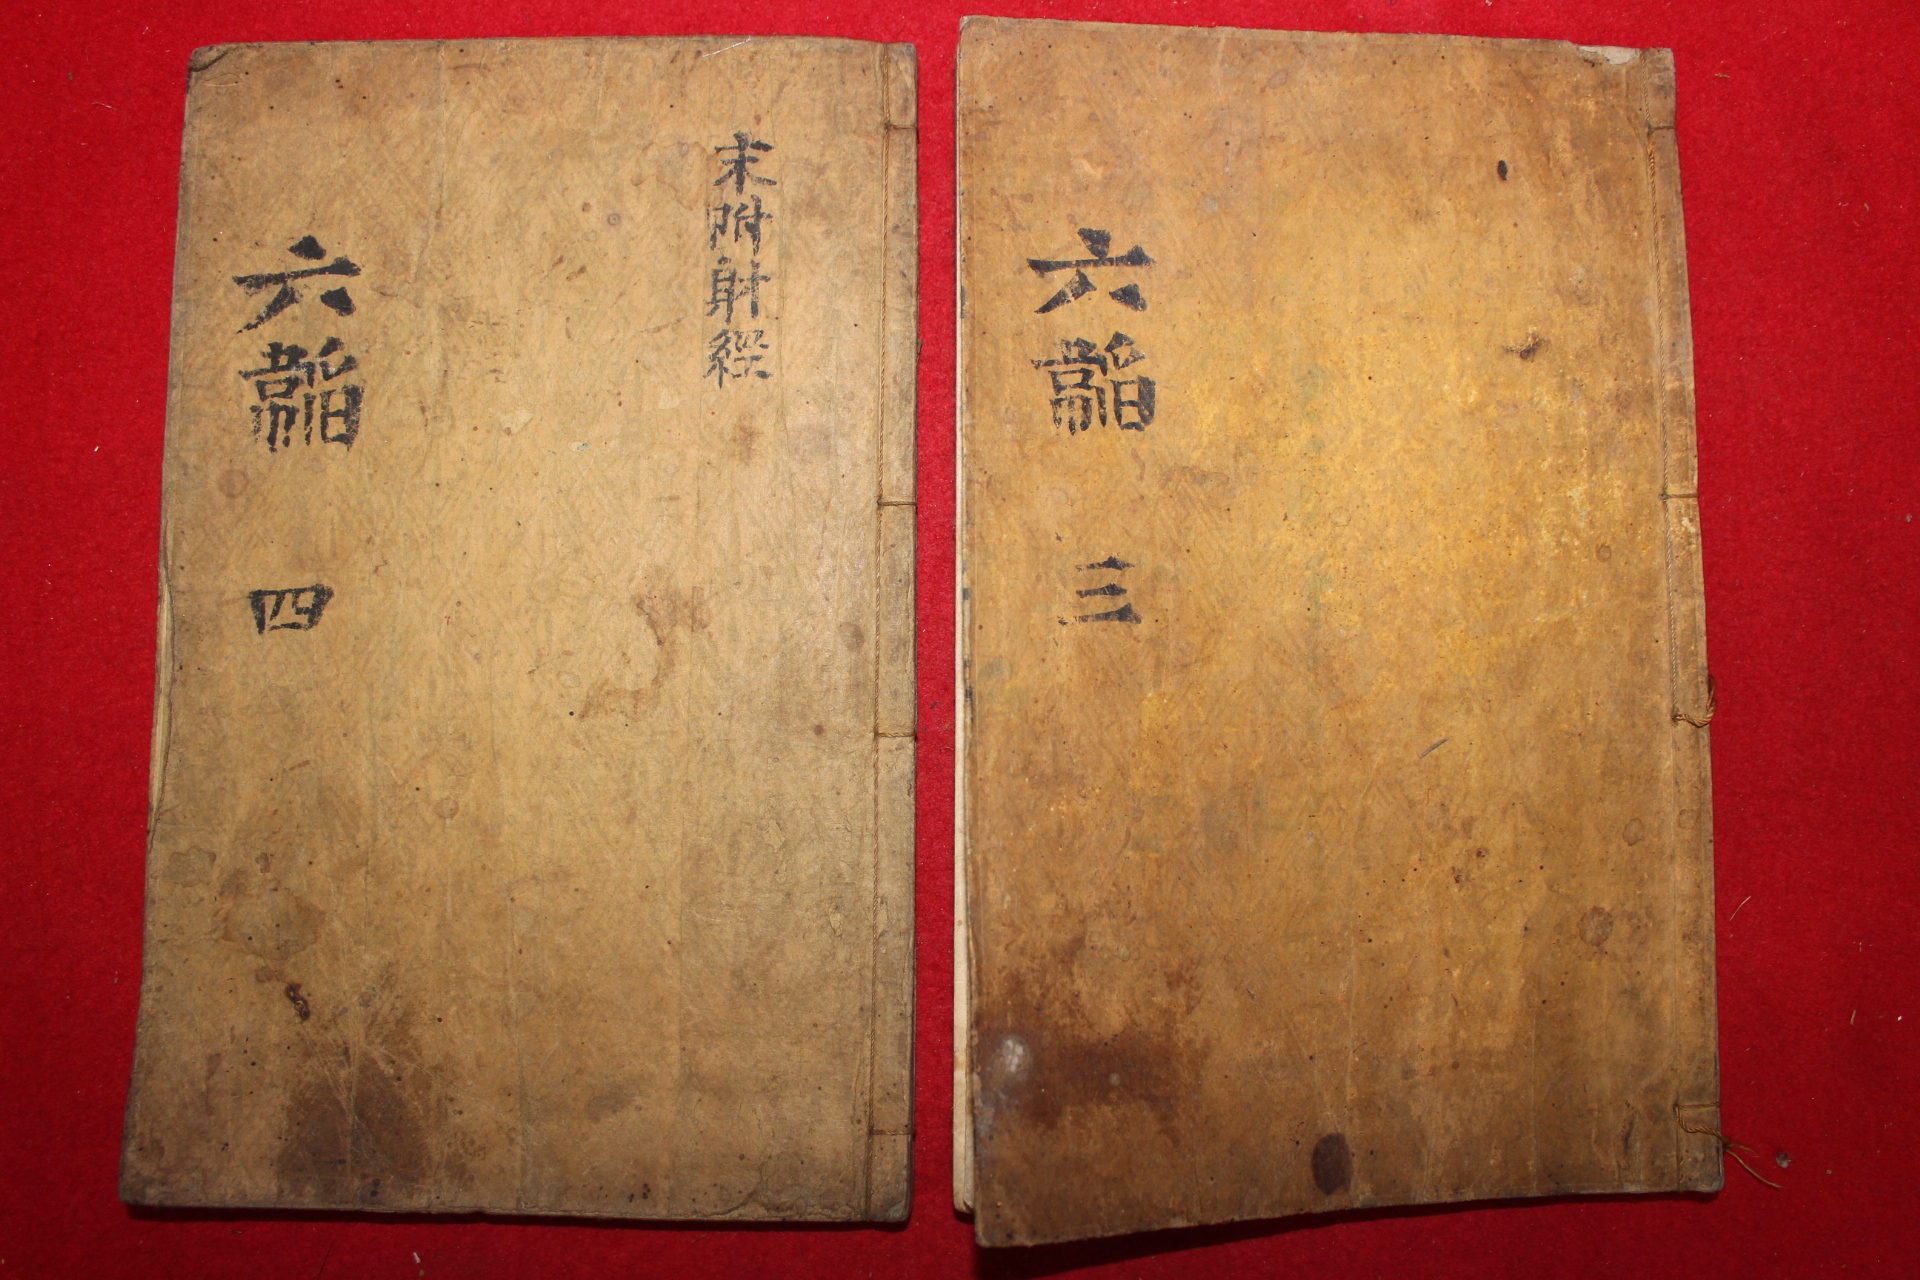 末附射經
六韜 四
六韜 三